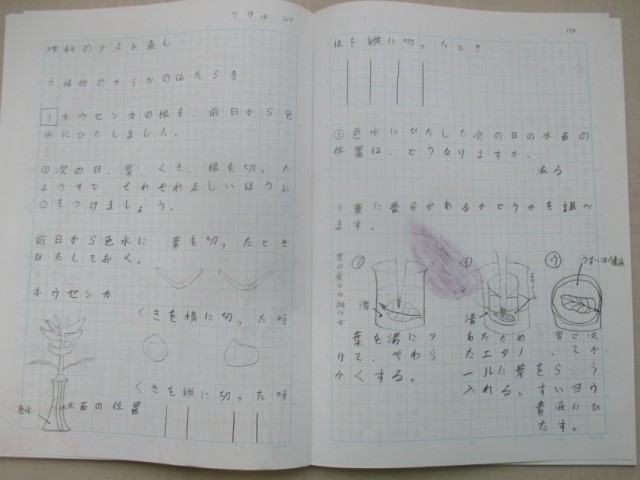 理科のテスト直し
3.植物のからだのはたらき
1 ホウセンカの根を、前日から色
水にひたしました。
②次の日、葉、くき、根を切った
ようすで それぞれ正しいほうに
○をつけましょう。
前日から色水に
ひたしておく。
葉を切ったとき
ホウセンカ
くきを横に切った時
くきを縦に切った時
色水
水面の位置
根を縦に切ったとき
③色水にひたした次の日の水面の
位置は、どうなりますか。
減る
3 葉に養分があるかどうかを調べ
ます。
ア
湯
葉を湯につ
けて、やわら
かくする。
イ
湯
あたため
たエタノ
ールに葉を
入れる。
ウ
うすいヨウ素液